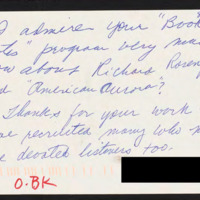 I admire your "Book
" program very
about Richard Rosen
"American Aurora"?
Thanks for your work
recruited many who
devoted listeners too.
O.BK